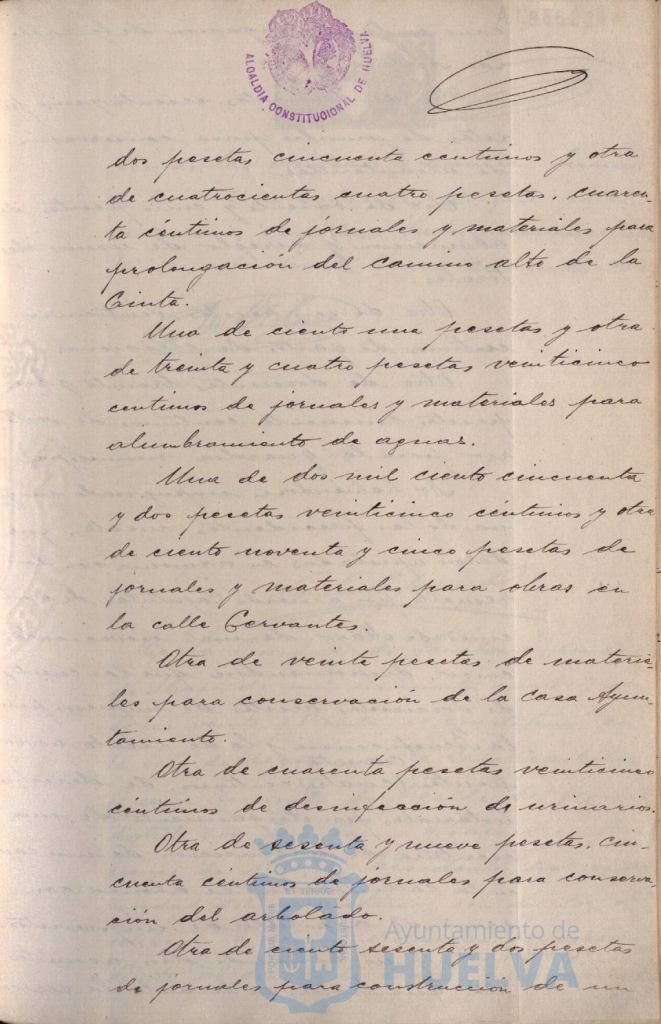 ALCALDIA CONSTITUCIONAL DE HUELVA
dos pesetas cincuenta centimos y otra
de cuatrocientas cuatro pesetas, cuaren-
ta céntimos de jornales y materiales para
prolongación del camino alto de la
Cinta.
Una de ciento una pesetas y otra
de treinta y cuatro pesetas veinticinco
centimos de jornales y materiales para
alumbramiento de aguas.
Una de dos mil ciento cincuenta
y dos pesetas veinticinco céntimos y otra
de ciento noventa y cinco pesetas de
jornales y materiales para obras en
la calle Cervantes.
Otra de veinte pesetas de materia-
les para conservación de la casa Ayun-
tamiento.
Otra de cuarenta pesetas veinticinco
céntimos de desinfección de urinarios.
Otra de sesenta y nueve pesetas, cin-
cuenta céntimos de jornales para conserva-
ción del arbolado.
Otra de ciento sesenta y dos pesetas
de jornales para construcción de un
Ayuntamiento de
HUELVA